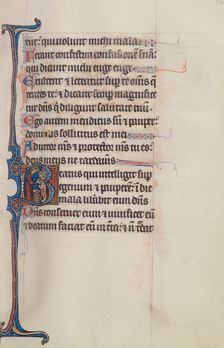 tur: qui uolunt michi mala
Ferant confestim confusionē suā:
qui dicunt michi euge euge
Exultent et letentur sup te omēs q̄
rentes te: et dicant semp magnificē
tur dn̄s q̄ diligunt salutare tuum
Ego autem mendicus sum et paup:
dominus sollicitus est mei
Adiutor m̄s et protector m̄s tu es:
deus meus ne tardaueris
Beatus qui intelligit sup
egenum et pauperē: in die
mala libabit eum dn̄s
Dn̄s conseruet eum et uiuificet eū
et beatum faciat eū in tr̄a: et n̄ tradat